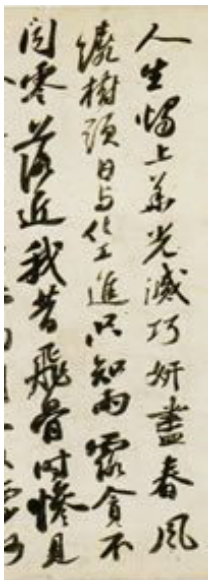 人生燭上華光滅巧妍盡春風
繞樹頭日与化工進只知雨露貪不
聞零落近我昔飛骨時慘見